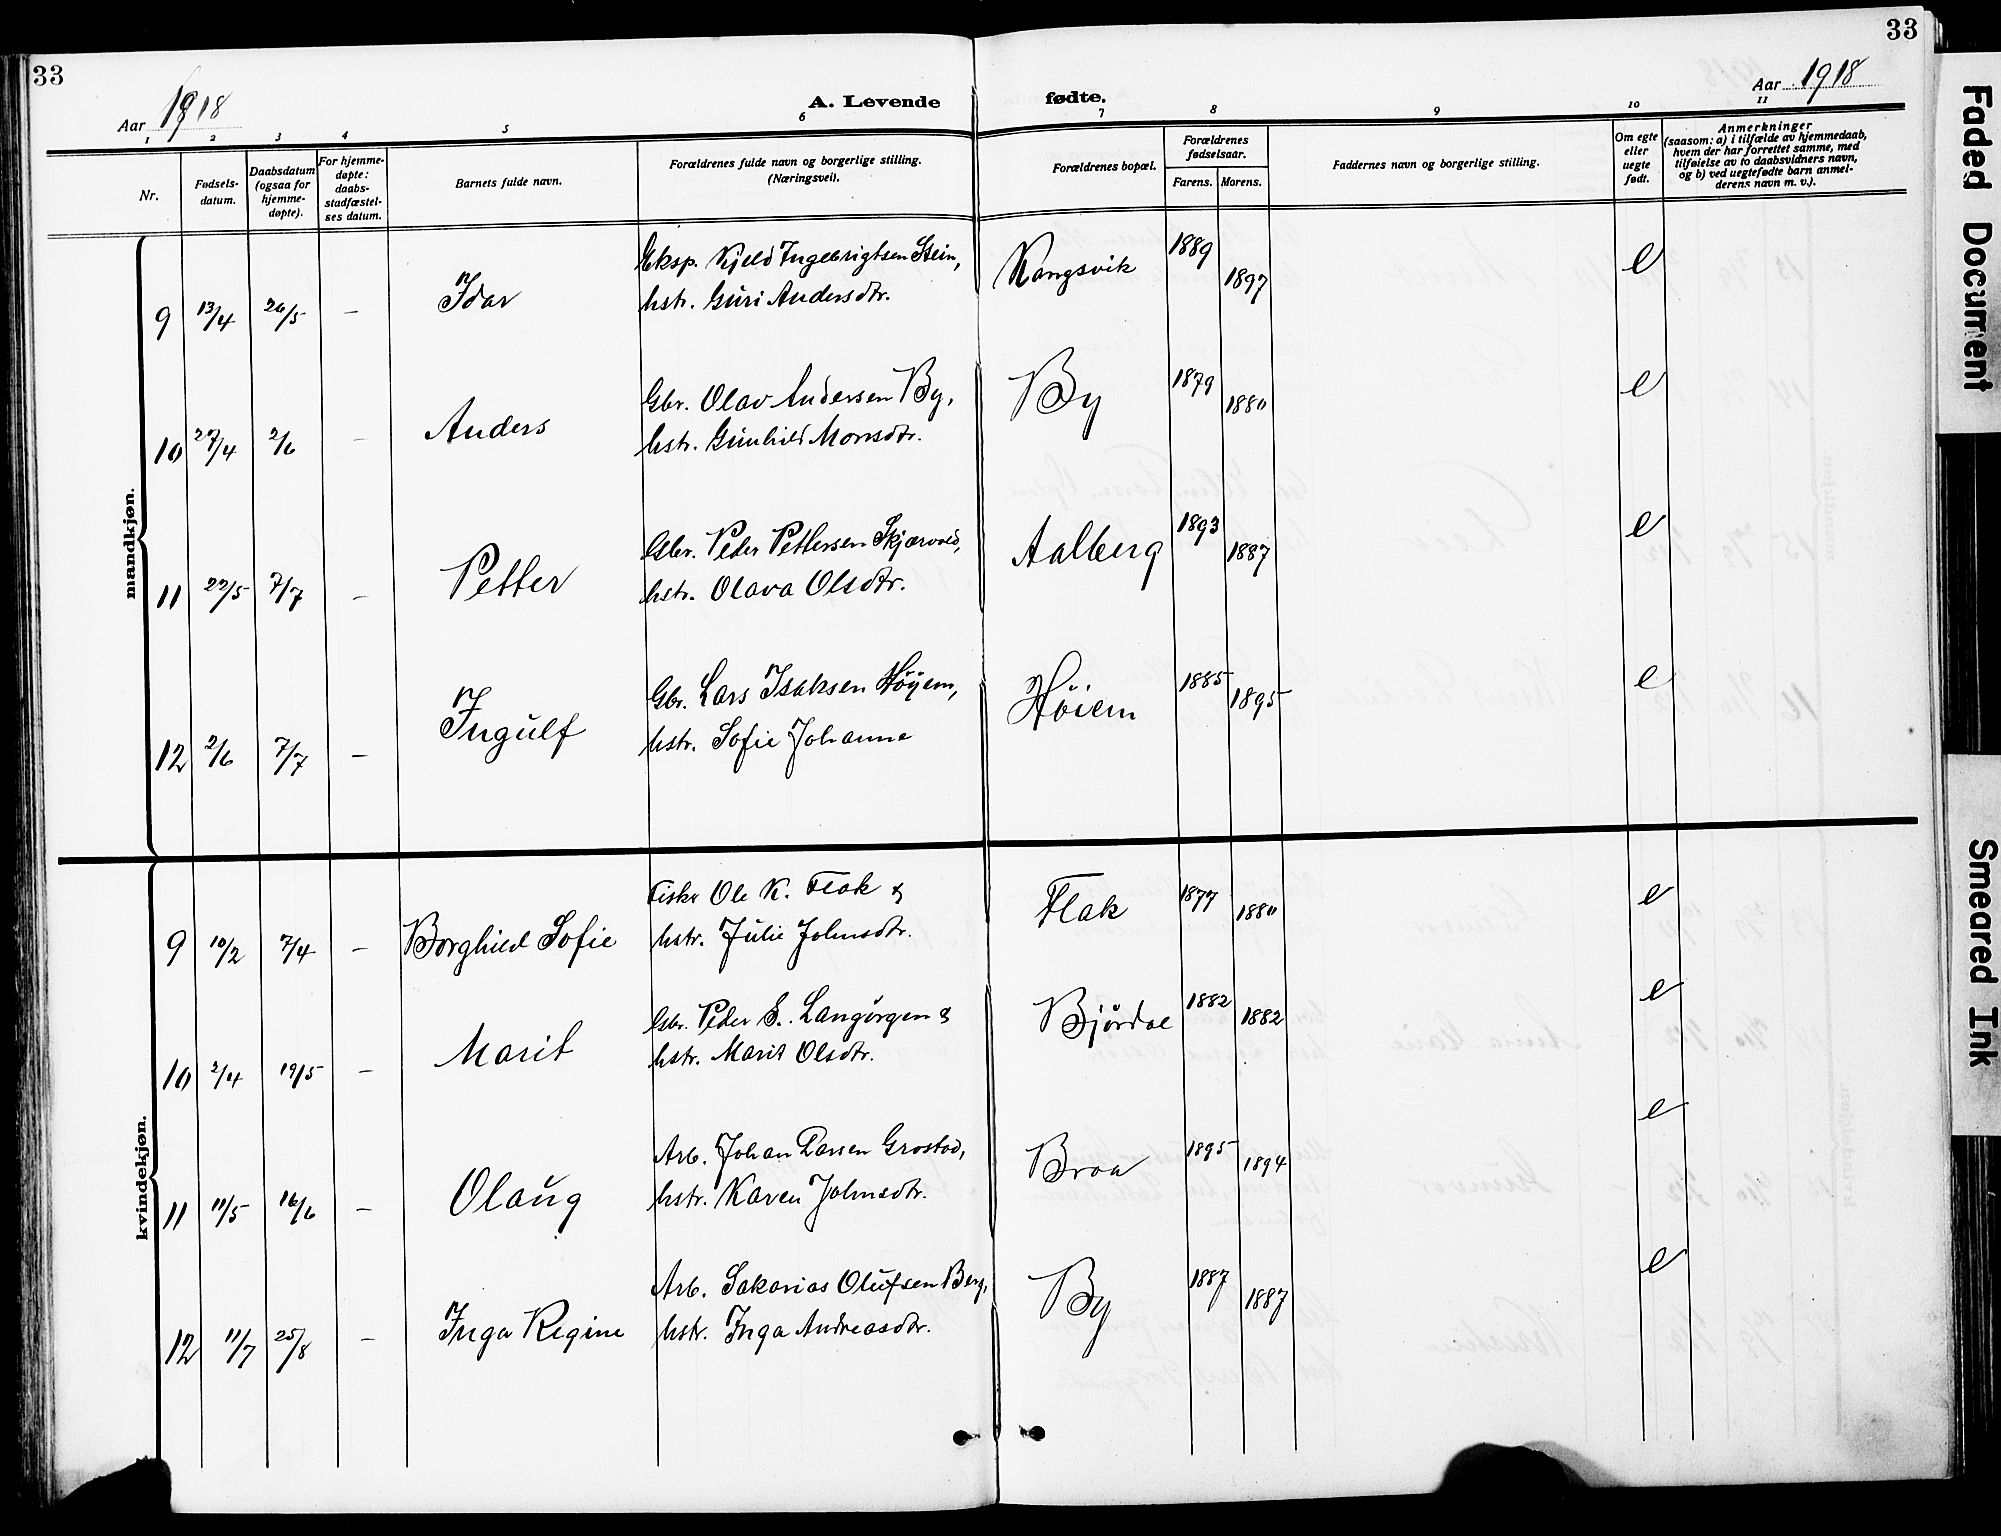 33
33
Aar 1918
A. Levende fødte.
Aar 1918
1 2 3 4 5 6 7 8 9 10 11
Nr.
Fødsels-
datum.
Daabsdatum
(ogsaa for
hjemme-
døpte).
For hjemme-
døpte:
daabs-
stadfæstel-
ses datum.
Barnets fulde navn.
Forældrenes fulde navn og borgerlige stilling.
(Næringsvei).
Forældrenes bopæl.
Forældrenes
fødselsaar.
Farens. Morens.
Faddernes navn og borgerlige stilling.
Om egte
eller
uegte
født.
Anmerkninger
(saasom: a) i tilfælde av hjemmedaab,
hvem der har forrettet samme, med
tilføielse av to daabsvidners navn,
og b) ved uegtefødte barn anmel-
derens navn m. v.).
mandkjøn.
Eksp. Kjeld Ingebrigtsen Stein,
9 13/4 20/5 – Idar hstr. Guri Andersdtr. Kangsvik 1889 1897 e
Gbr. Olav Andersen By,
10 27/4 2/6 – Anders hstr. Gunhild Monsdtr. By 1879 1880 e
Gbr. Peder Pettersen Skjærvold,
11 22/5 7/7 – Petter hstr. Olava Olsdtr. Aalberg 1893 1887 e
Gbr. Lars Isaksen Høyem,
12 2/6 7/7 – Ingulf hstr. Sofie Johanne Høiem 1885 1895 e
kvindekjøn.
Fisker Ole K. Flak &
9 10/2 7/4 – Borghild Sofie hstr. Julie Johnsdtr. Flak 1877 1880 e
Gbr. Peder E. Langørgen &
10 2/4 19/5 – Marit hstr. Marit Olsdtr. Bjørdal 1882 1882 e
Arb. Johan Larsen Grostad,
11 11/5 16/6 – Olaug hstr. Karen Johnsdtr. Braa 1895 1894 e
Arb. Sakarias Olufsen Berg,
12 11/7 25/8 – Inga Regine hstr. Inga Andreasdtr. By 1887 1887 e
Faded Document
Smeared Ink